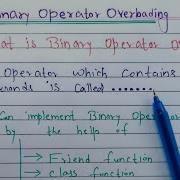 inary Operator Overloading
at is Binary Operator O
Operator which contains
ands is called .......
Can implement Binary Oper
by the help of
Friend function
class function